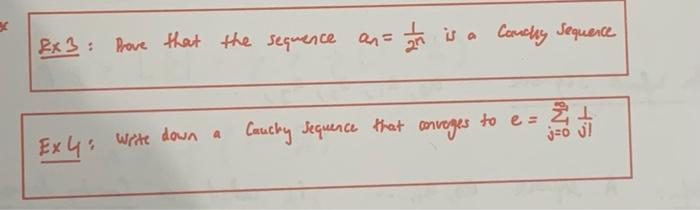 Ex 3 : Prove that the sequence aₙ = 1/2ⁿ is a Cauchy sequence
Ex 4 : Write down a Cauchy sequence that converges to e = ∑_{j=0}^{∞} 1/j!